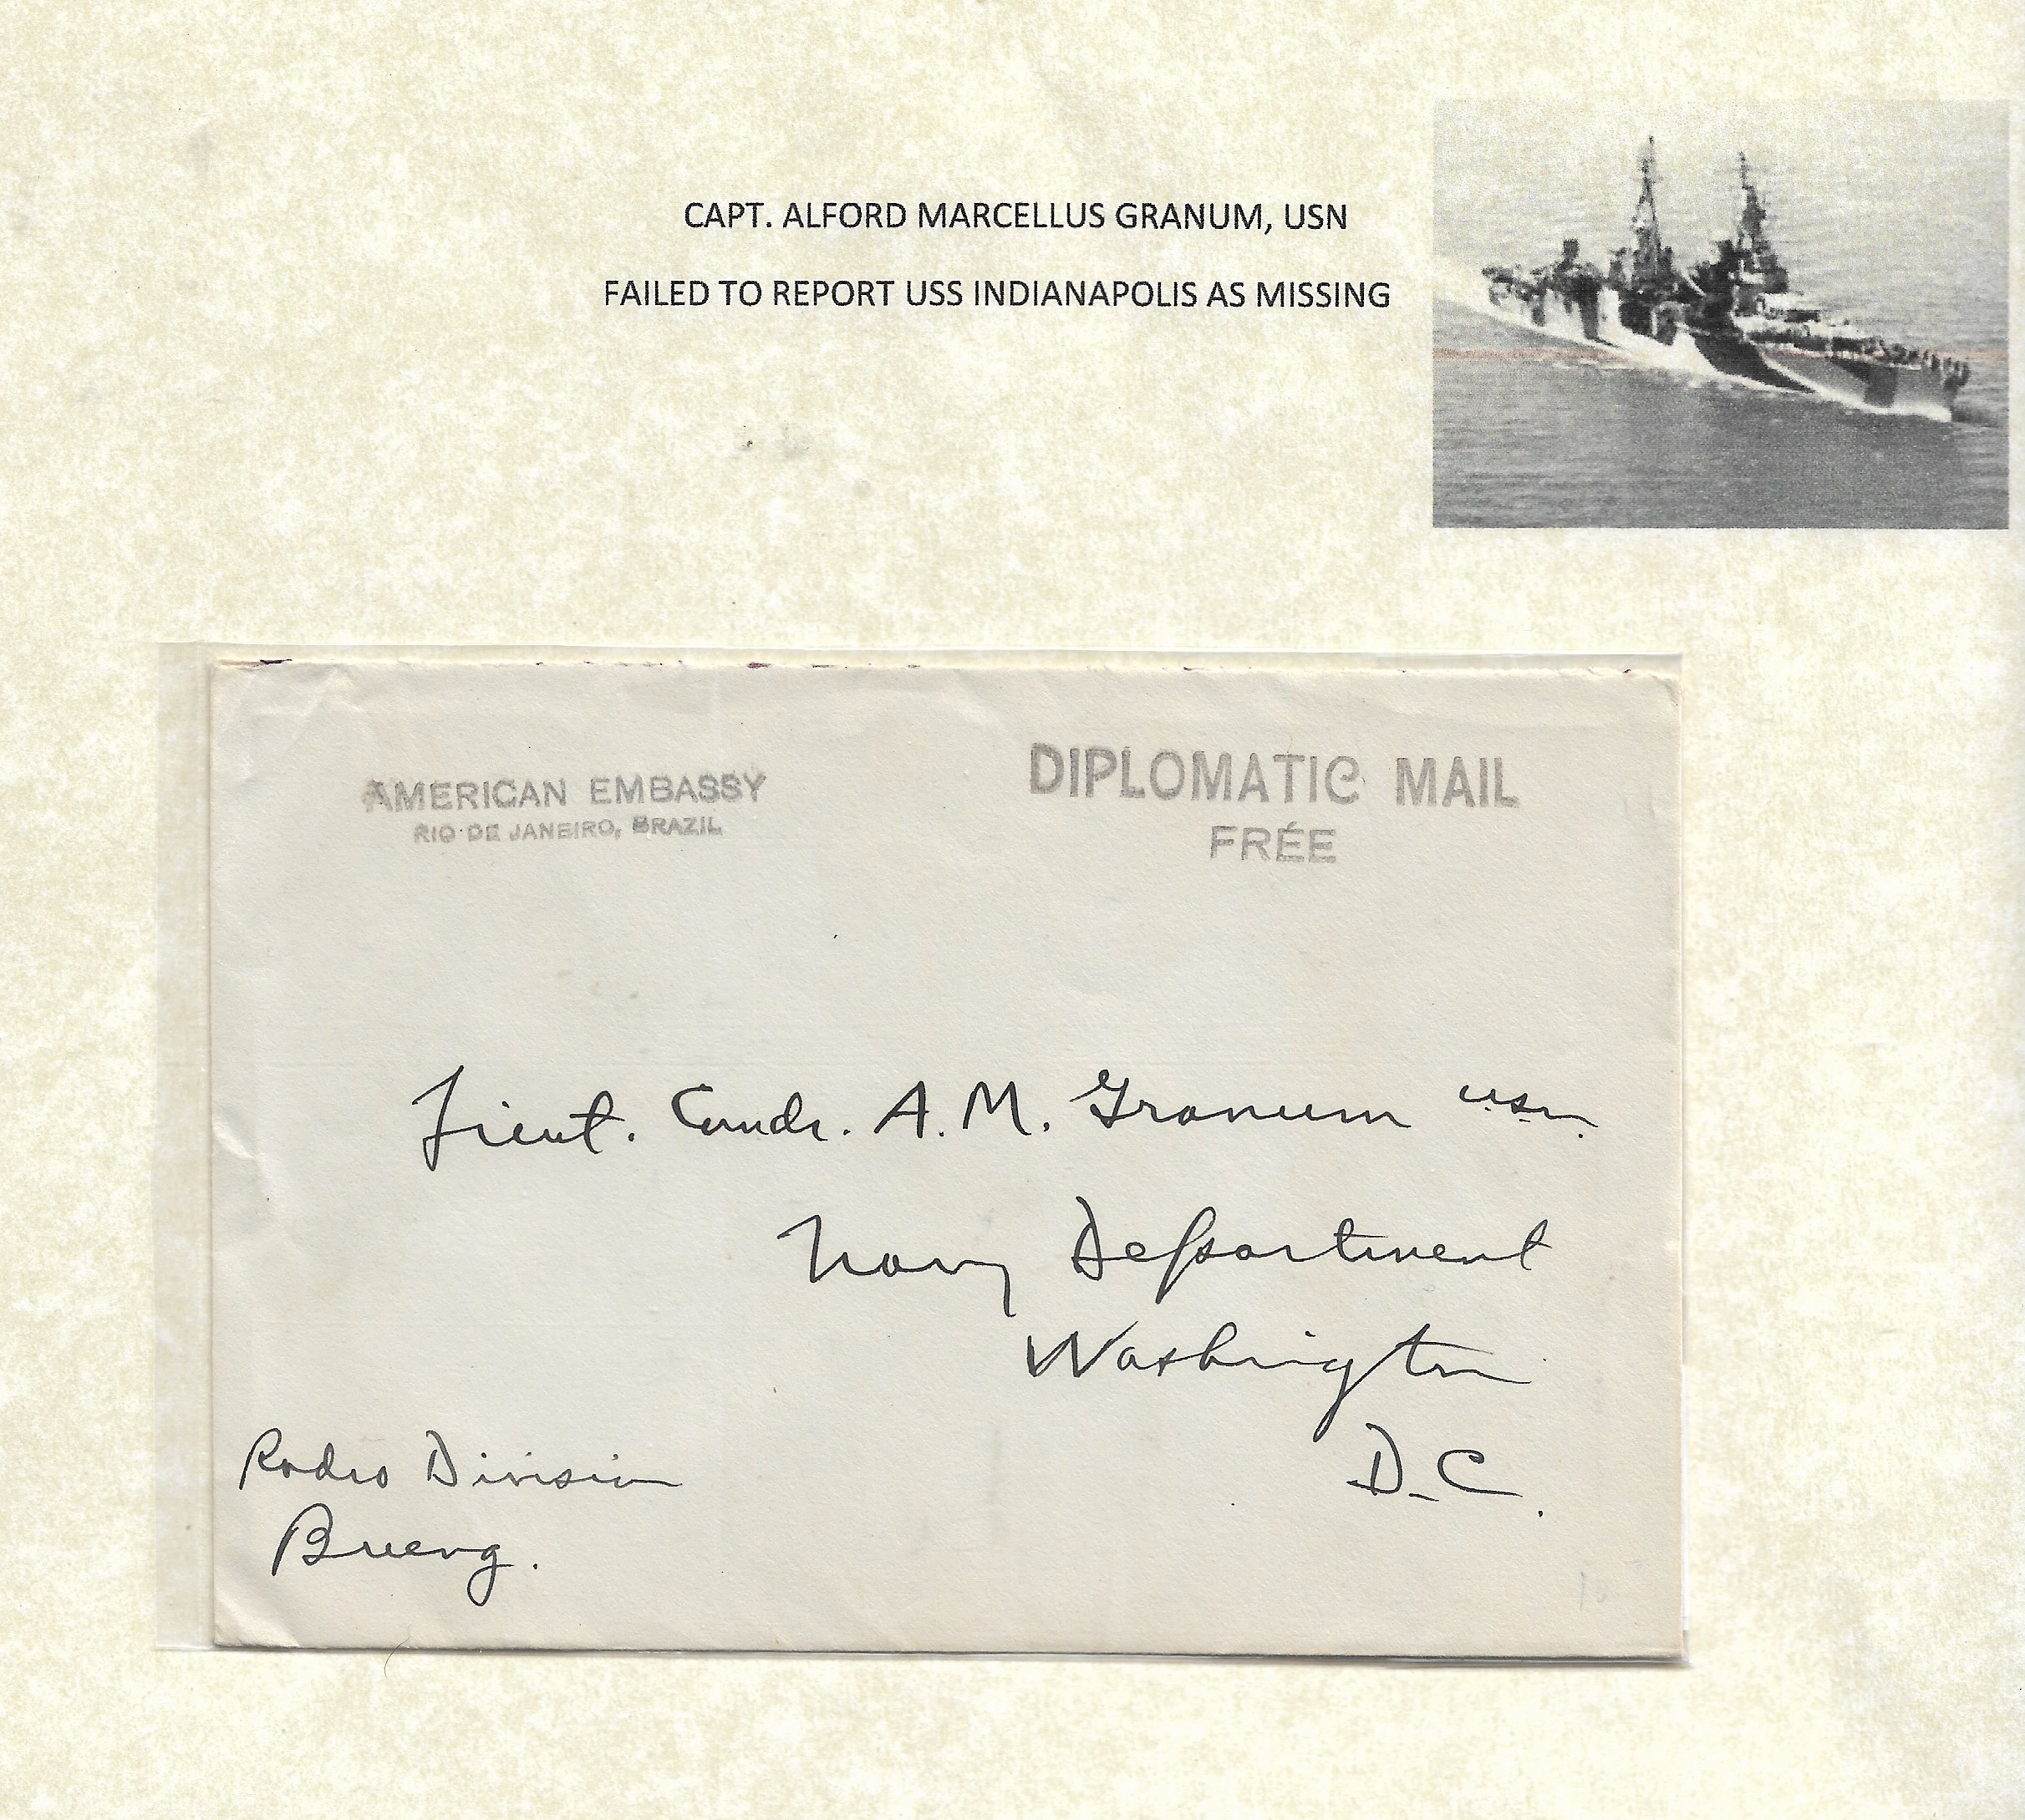 CAPT. ALFORD MARCELLUS GRANUM, USN
FAILED TO REPORT USS INDIANAPOLIS AS MISSING
AMERICAN EMBASSY
RIO DE JANEIRO, BRAZIL
DIPLOMATIC MAIL
FRÉE
Lieut. Comdr. A. M. Granum USN.
Navy Department
Washington
D.C.
Radio Division
Bueng.